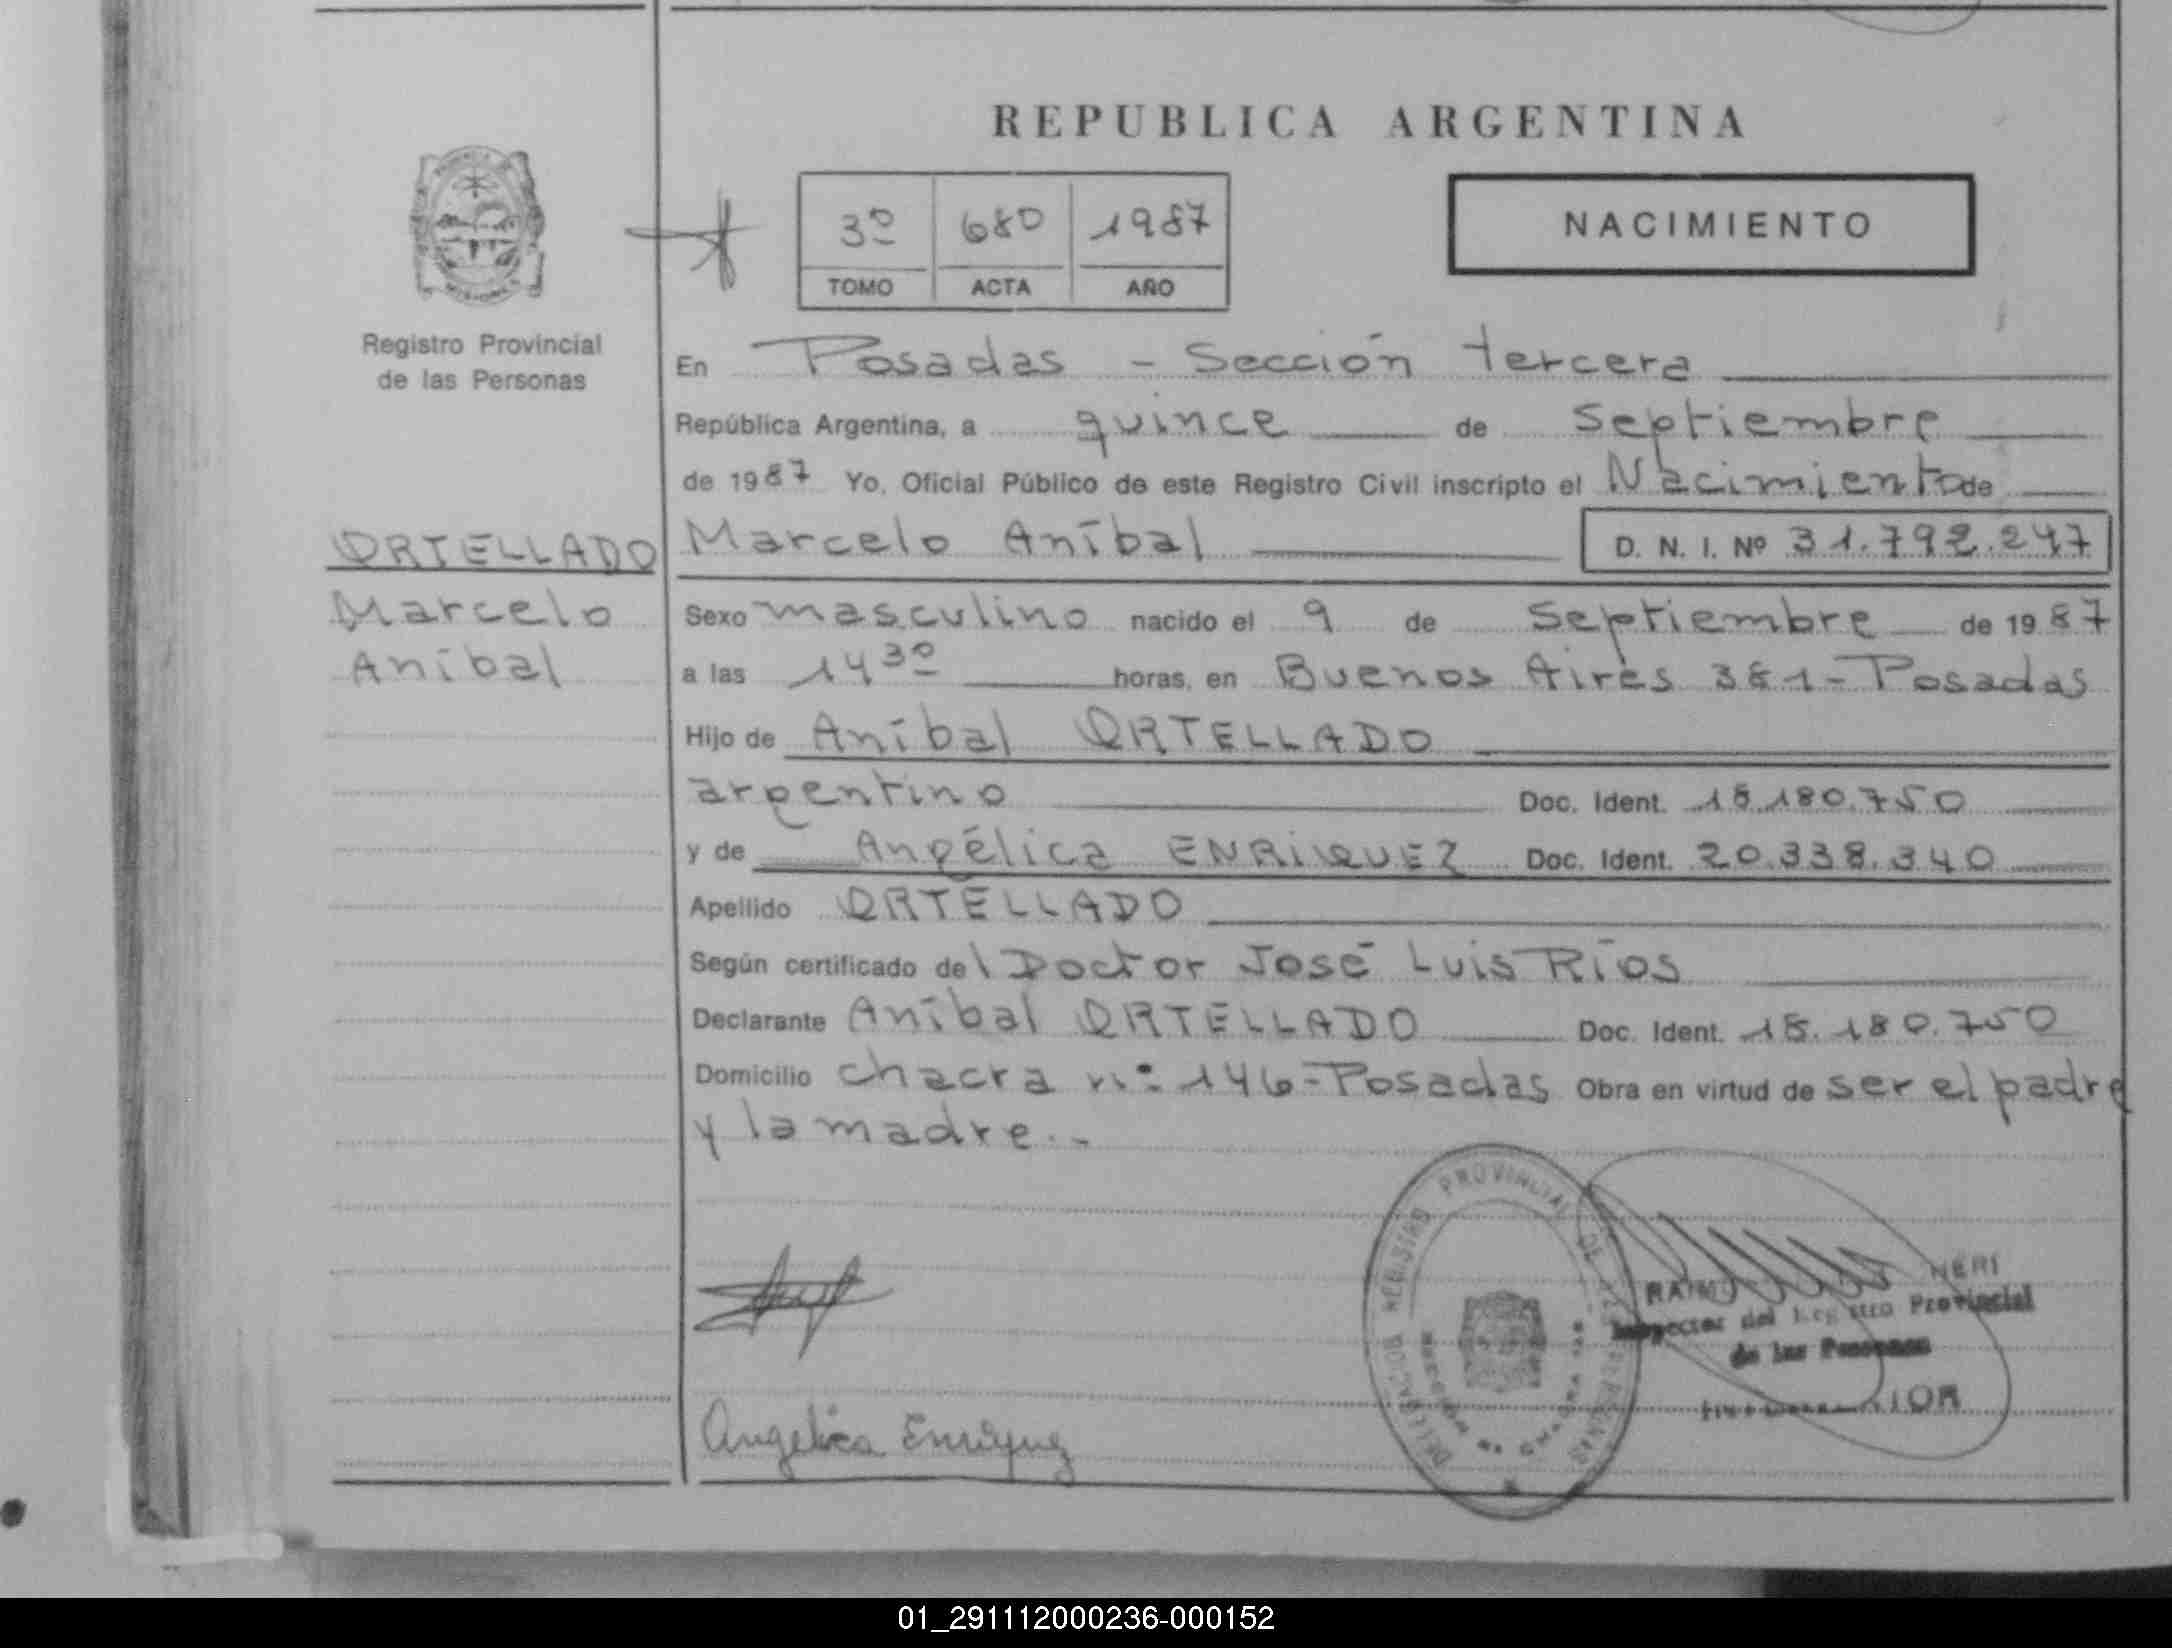 REPUBLICA ARGENTINA
3º 680 1987
TOMO ACTA AÑO
NACIMIENTO
Registro Provincial
de las Personas
En Posadas - Sección tercera
República Argentina, a quince de Septiembre
de 1987 Yo, Oficial Público de este Registro Civil inscripto el Nacimiento de
ORTELLADO
Marcelo
Aníbal
Marcelo Aníbal D. N. I. Nº 31.792.247
Sexo masculino nacido el 9 de Septiembre de 1987
a las 14 30 horas, en Buenos Aires 381 - Posadas
Hijo de Aníbal ORTELLADO
argentino Doc. Ident. 18.180.750
y de Angélica ENRIQUEZ Doc. Ident. 20.338.340
Apellido ORTELLADO
Según certificado del Doctor José Luis Ríos
Declarante Aníbal ORTELLADO Doc. Ident. 18.180.750
Domicilio chacra nº 146 - Posadas Obra en virtud de ser el padre
y la madre.-
REGISTRO PROVINCIAL DE
NERI
Inspector del Registro Provincial
de las Personas
Angelica Enriquez
01_291112000236-000152